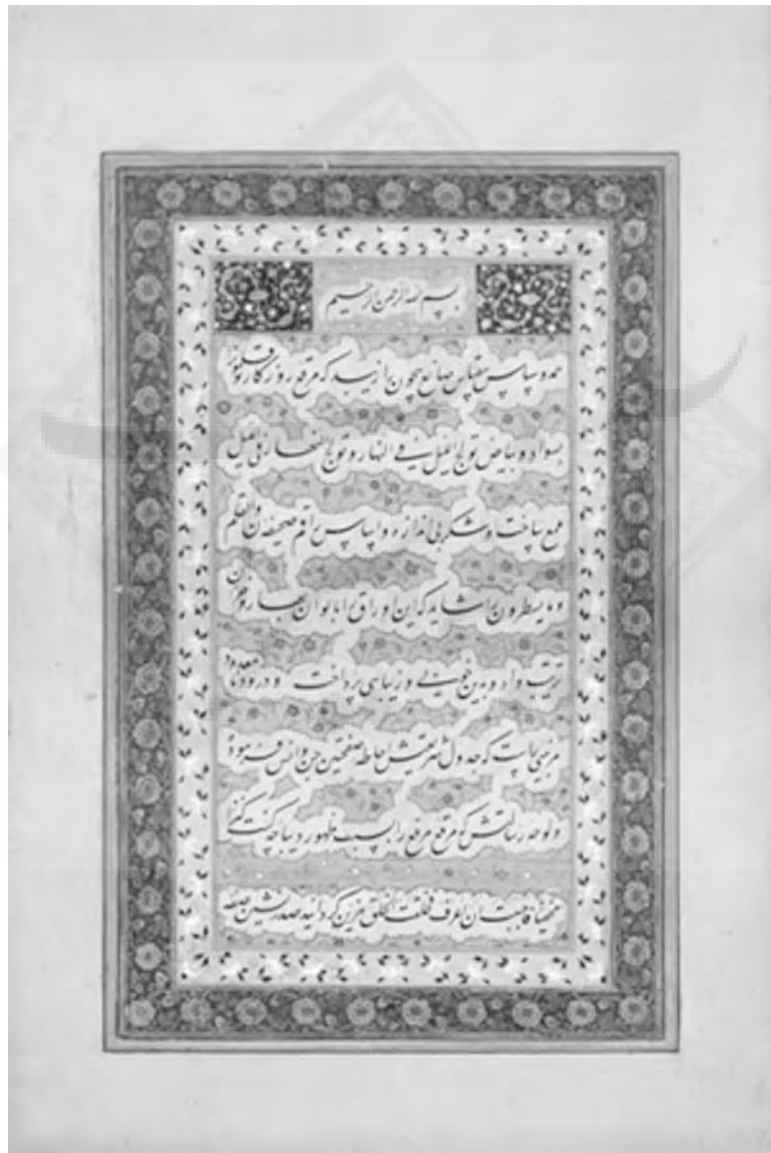 بسم الله الرحمن الرحیم
حمد و سپاس بیقیاس صانع بیچون را زیبد که مرقع روزگار بوقلمون
بسواد و بیاض تولج اللیل فی النهار و تولج النهار فی اللیل
جمع ساخت و شکر بی اندازه و سپاس راقم صحیفه ن والقلم
و ما یسطرون را شاید که این اوراق را بالوان بهار و خزان
ترتیب داد و بدین خوبی و زیبایی پرداخت و درود نامعدود
که جدول شریعتش احاطه صفحتین جن و انس فرموده
و لوحه رسالتش که مرقع را بسبب ظهور دیباچه کنت کنزا
مخفیا فاحببت ان اعرف فخلقت الخلق مزین گردانید صدرنشین صفه